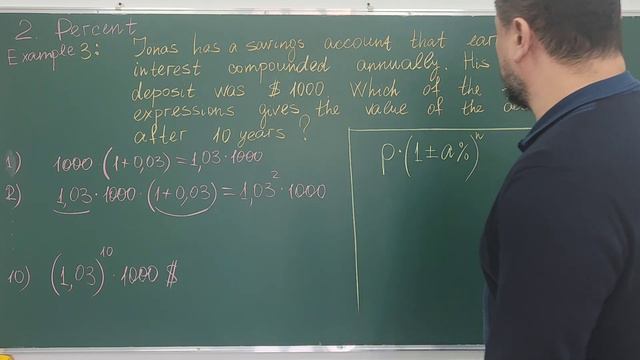 2. Percent
Example 3: Jonas has a savings account that
interest compounded annually. His
deposit was $1000 Which of the
expressions gives the value of the
after 10 years?
1) 1000 (1+0,03) = 1,03·1000
2) 1,03·1000·(1+0,03) = 1,03²·1000
10) (1,03)¹⁰·1000 $
p·(1±a%)ⁿ